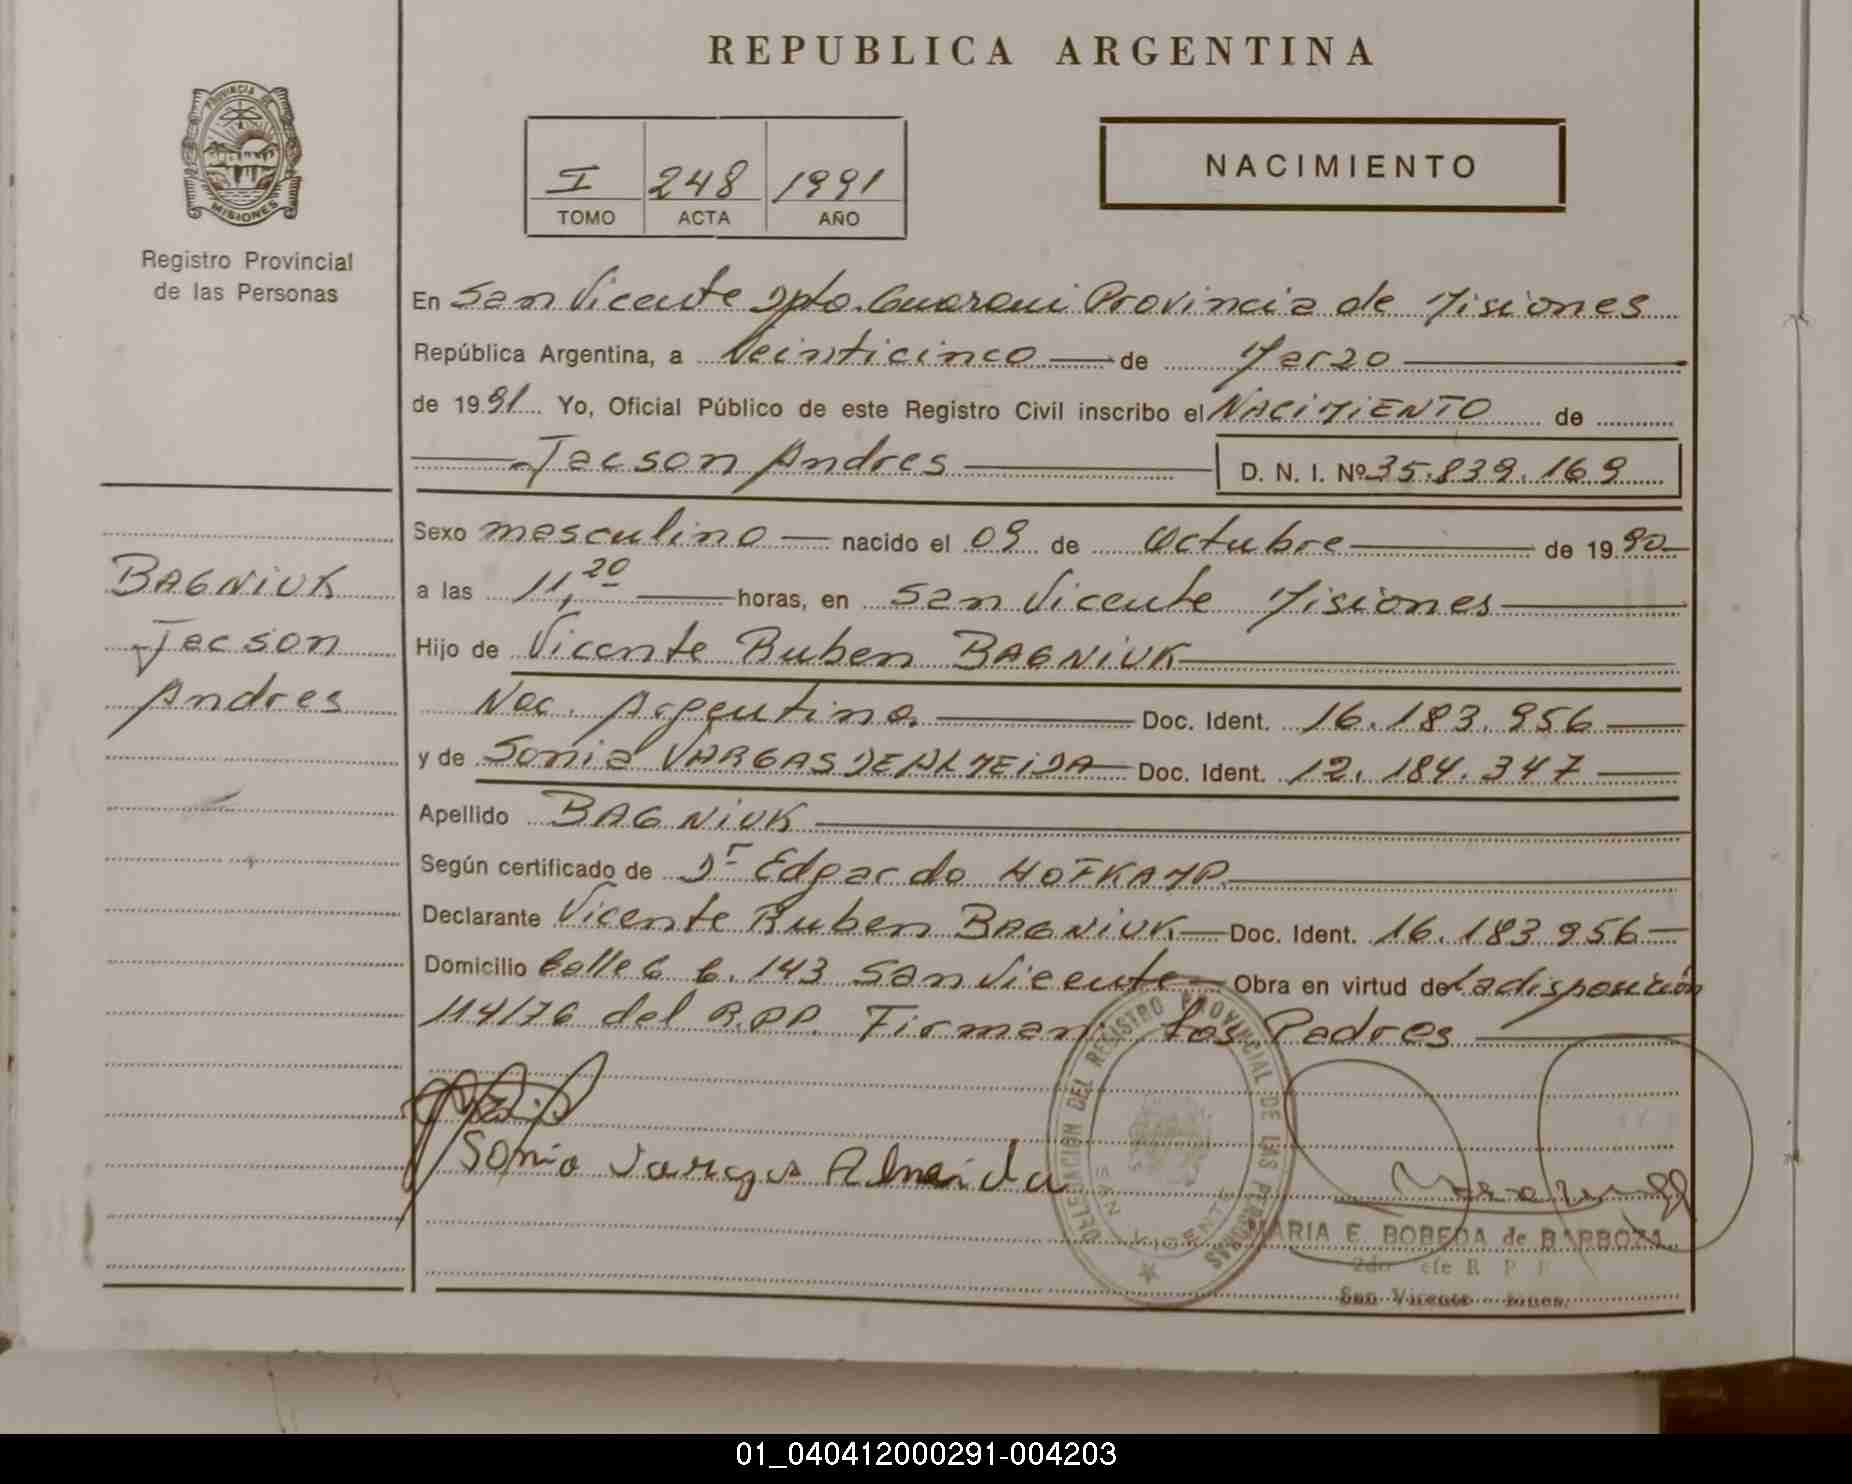 REPUBLICA ARGENTINA
PROVINCIA DE
MISIONES
Registro Provincial
de las Personas
I 248 1991
TOMO ACTA AÑO
NACIMIENTO
En San Vicente Dpto. Guarani Provincia de Misiones
República Argentina, a Veinticinco de Marzo
de 1991 Yo, Oficial Público de este Registro Civil inscribo el NACIMIENTO de
Jacson Andres D. N. I. Nº 35.839.169
Sexo masculino nacido el 09 de Octubre de 1990
a las 11,20 horas, en San Vicente Misiones
Hijo de Vicente Ruben BAGNIUK
Nac. Argentina. Doc. Ident. 16.183.956
y de Sonia VARGAS DE ALMEIDA Doc. Ident. 12.184.347
Apellido BAGNIUK
Según certificado de Dr Edgardo HOFKAMP
Declarante Vicente Ruben BAGNIUK Doc. Ident. 16.183.956
Domicilio Calle 6 C. 143 San Vicente Obra en virtud de La disposición
114/76 del R.P.P. Firman: Los Padres
BAGNIUK
Jacson
Andres
Sonia Vargas Almeida
DELEGACION DEL REGISTRO PROVINCIAL DE LAS PERSONAS
SAN VICENTE
MARIA E. BOBEDA de BARBOZA
2do efe R P P
San Vicente
01_040412000291-004203